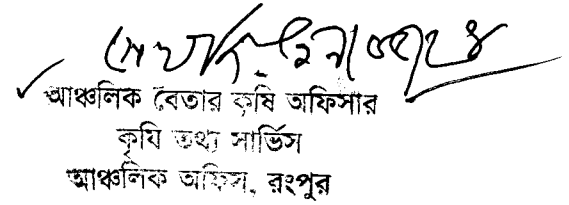 আঞ্চলিক বেতার কৃষি অফিসার
কৃষি তথ্য সার্ভিস
আঞ্চলিক অফিস, রংপুর